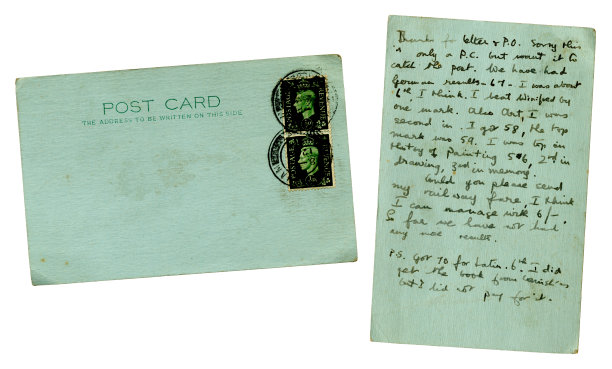 POST CARD
THE ADDRESS TO BE WRITTEN ON THIS SIDE
Thanks for letter & P.O. Sorry this
is only a P.C. but want it to
catch the post. We have had
German results - 67 - I was about
6th I think. I beat Winifred by
one mark. Also Art, I was
second in. I got 58, the top
mark was 59. I was top in
History of Painting 2nd in
drawing, 3rd in memory.
Could you please send
my railway fare, I think
I can manage with 6/-.
So far we have not had
any more results.
P.S. Got 70 for Latin. 6th I did
get the book from
but I did not pay for it.